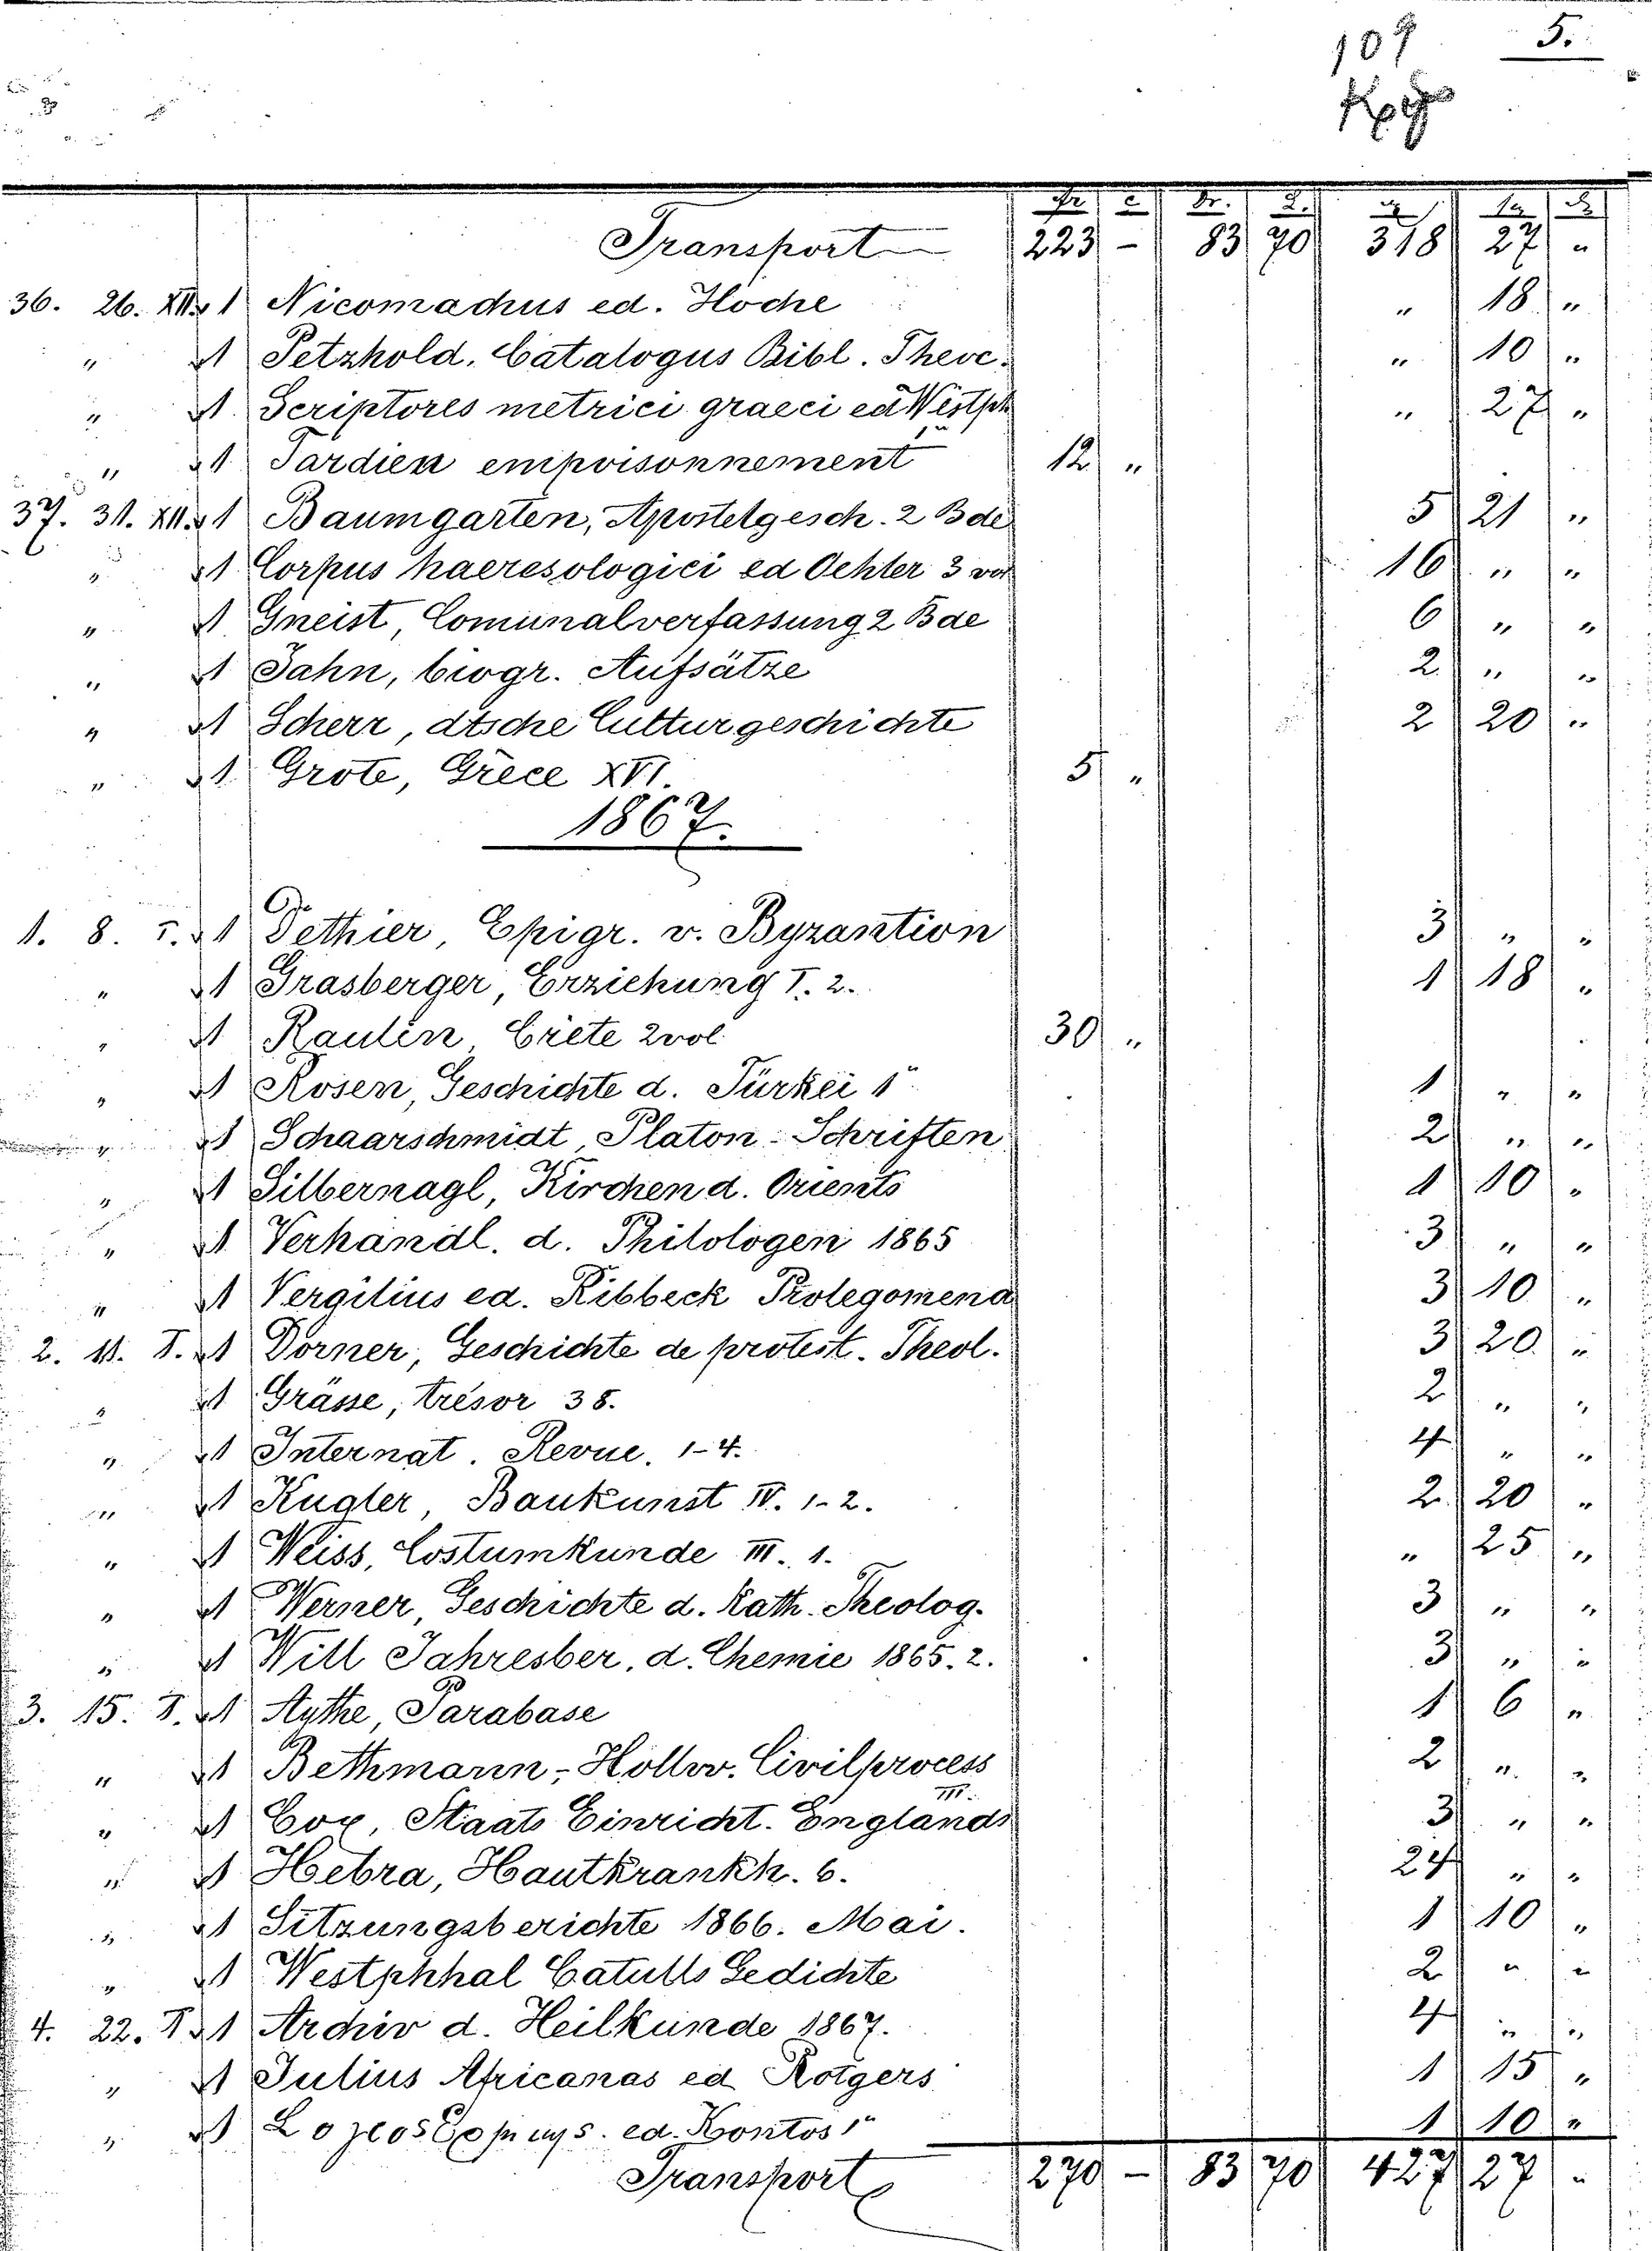 109 5.
Transport 223 - 83 70 318 27 "
36. 26. XII. 1 Nicomachus ed. Hoche " 18 "
" 1 Petzhold. Catalogus Bibl. Theoc. " 10 "
" 1 Scriptores metrici graeci ed Westph 1" " 27 "
" 1 Tardieu empoisonnement 12 "
37. 31. XII. 1 Baumgarten, Apostelgesch. 2 Bde 5 21 "
" 1 Corpus haeresologici ed Oehler 3 vol 16 " "
" 1 Gneist, Comunalverfassung 2 Bde 6 " "
" 1 Jahn, biogr. Aufsätze 2 " "
" 1 Scherr, dtsche Culturgeschichte 2 20 "
" 1 Grote, Grèce XVI. 5 "
1867.
1. 8. I. 1 Dethier, Epigr. v. Byzantion 3 " "
" 1 Grasberger, Erziehung I. 2. 1 18 "
" 1 Raulin, Crète 2 vol. 30 "
" 1 Rosen, Geschichte d. Türkei 1" 1 " "
" 1 Schaarschmidt, Platon. Schriften 2 " "
" 1 Silbernagl, Kirchen d. Orients 1 10 "
" 1 Verhandl. d. Philologen 1865 3 " "
" 1 Vergilius ed. Ribbeck Prolegomena 3 10 "
2. 11. I. 1 Dorner, Geschichte de protest. Theol. 3 20 "
" 1 Grässe, trésor 38. 2 " "
" 1 Internat. Revue. 1-4. 4 " "
" 1 Kugler, Baukunst IV. 1-2. 2 20 "
" 1 Weiss, Costumkunde III. 1. " 25 "
" 1 Werner, Geschichte d. Kath. Theolog. 3 " "
" 1 Will Jahresber. d. Chemie 1865. 2. 3 " "
3. 15. I. 1 Aythe, Parabase 1 6 "
" 1 Bethmann-Hollw. Civilprocess III. 2 " "
" 1 Cox, Staats Einricht. Englands 3 " "
" 1 Hebra, Hautkrankh. 6. 24 " "
" 1 Sitzungsberichte 1866. Mai. 1 10 "
" 1 Westphhal Catulls Gedichte 2 " "
4. 22. I. 1 Archiv d. Heilkunde 1867. 4 " "
" 1 Julius Africanas ed Rotgers 1 15 "
" 1 ed. Kontos 1" 1 10 "
Transport 270 - 83 70 427 27 "